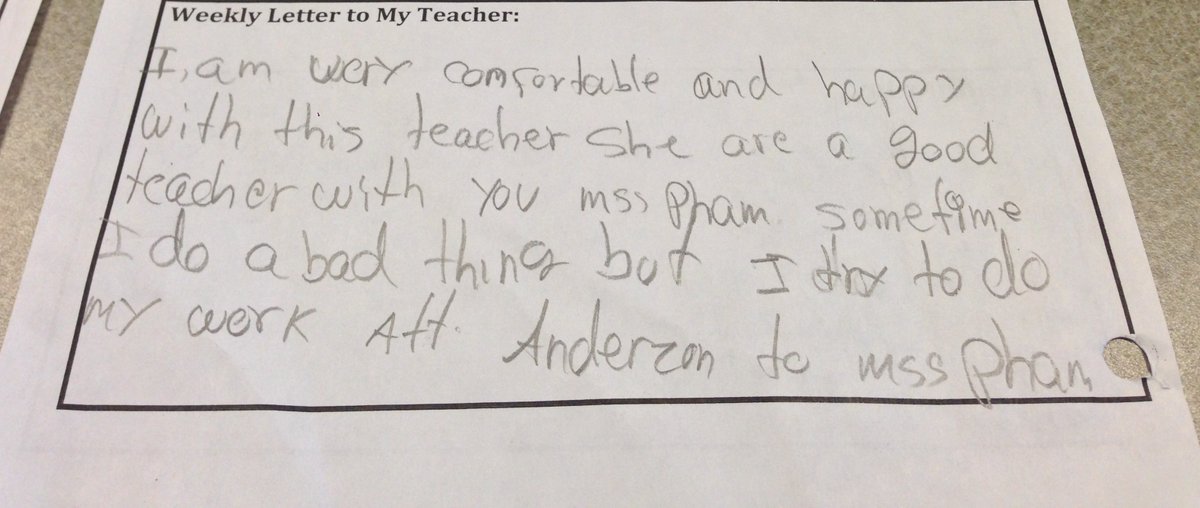 Weekly Letter to My Teacher:
I, am wery comfortable and happy
with this teacher She are a good
teacher with you mss Pham sometime
I do a bad thing but I try to do
my work Att. Anderzon to mss Pham